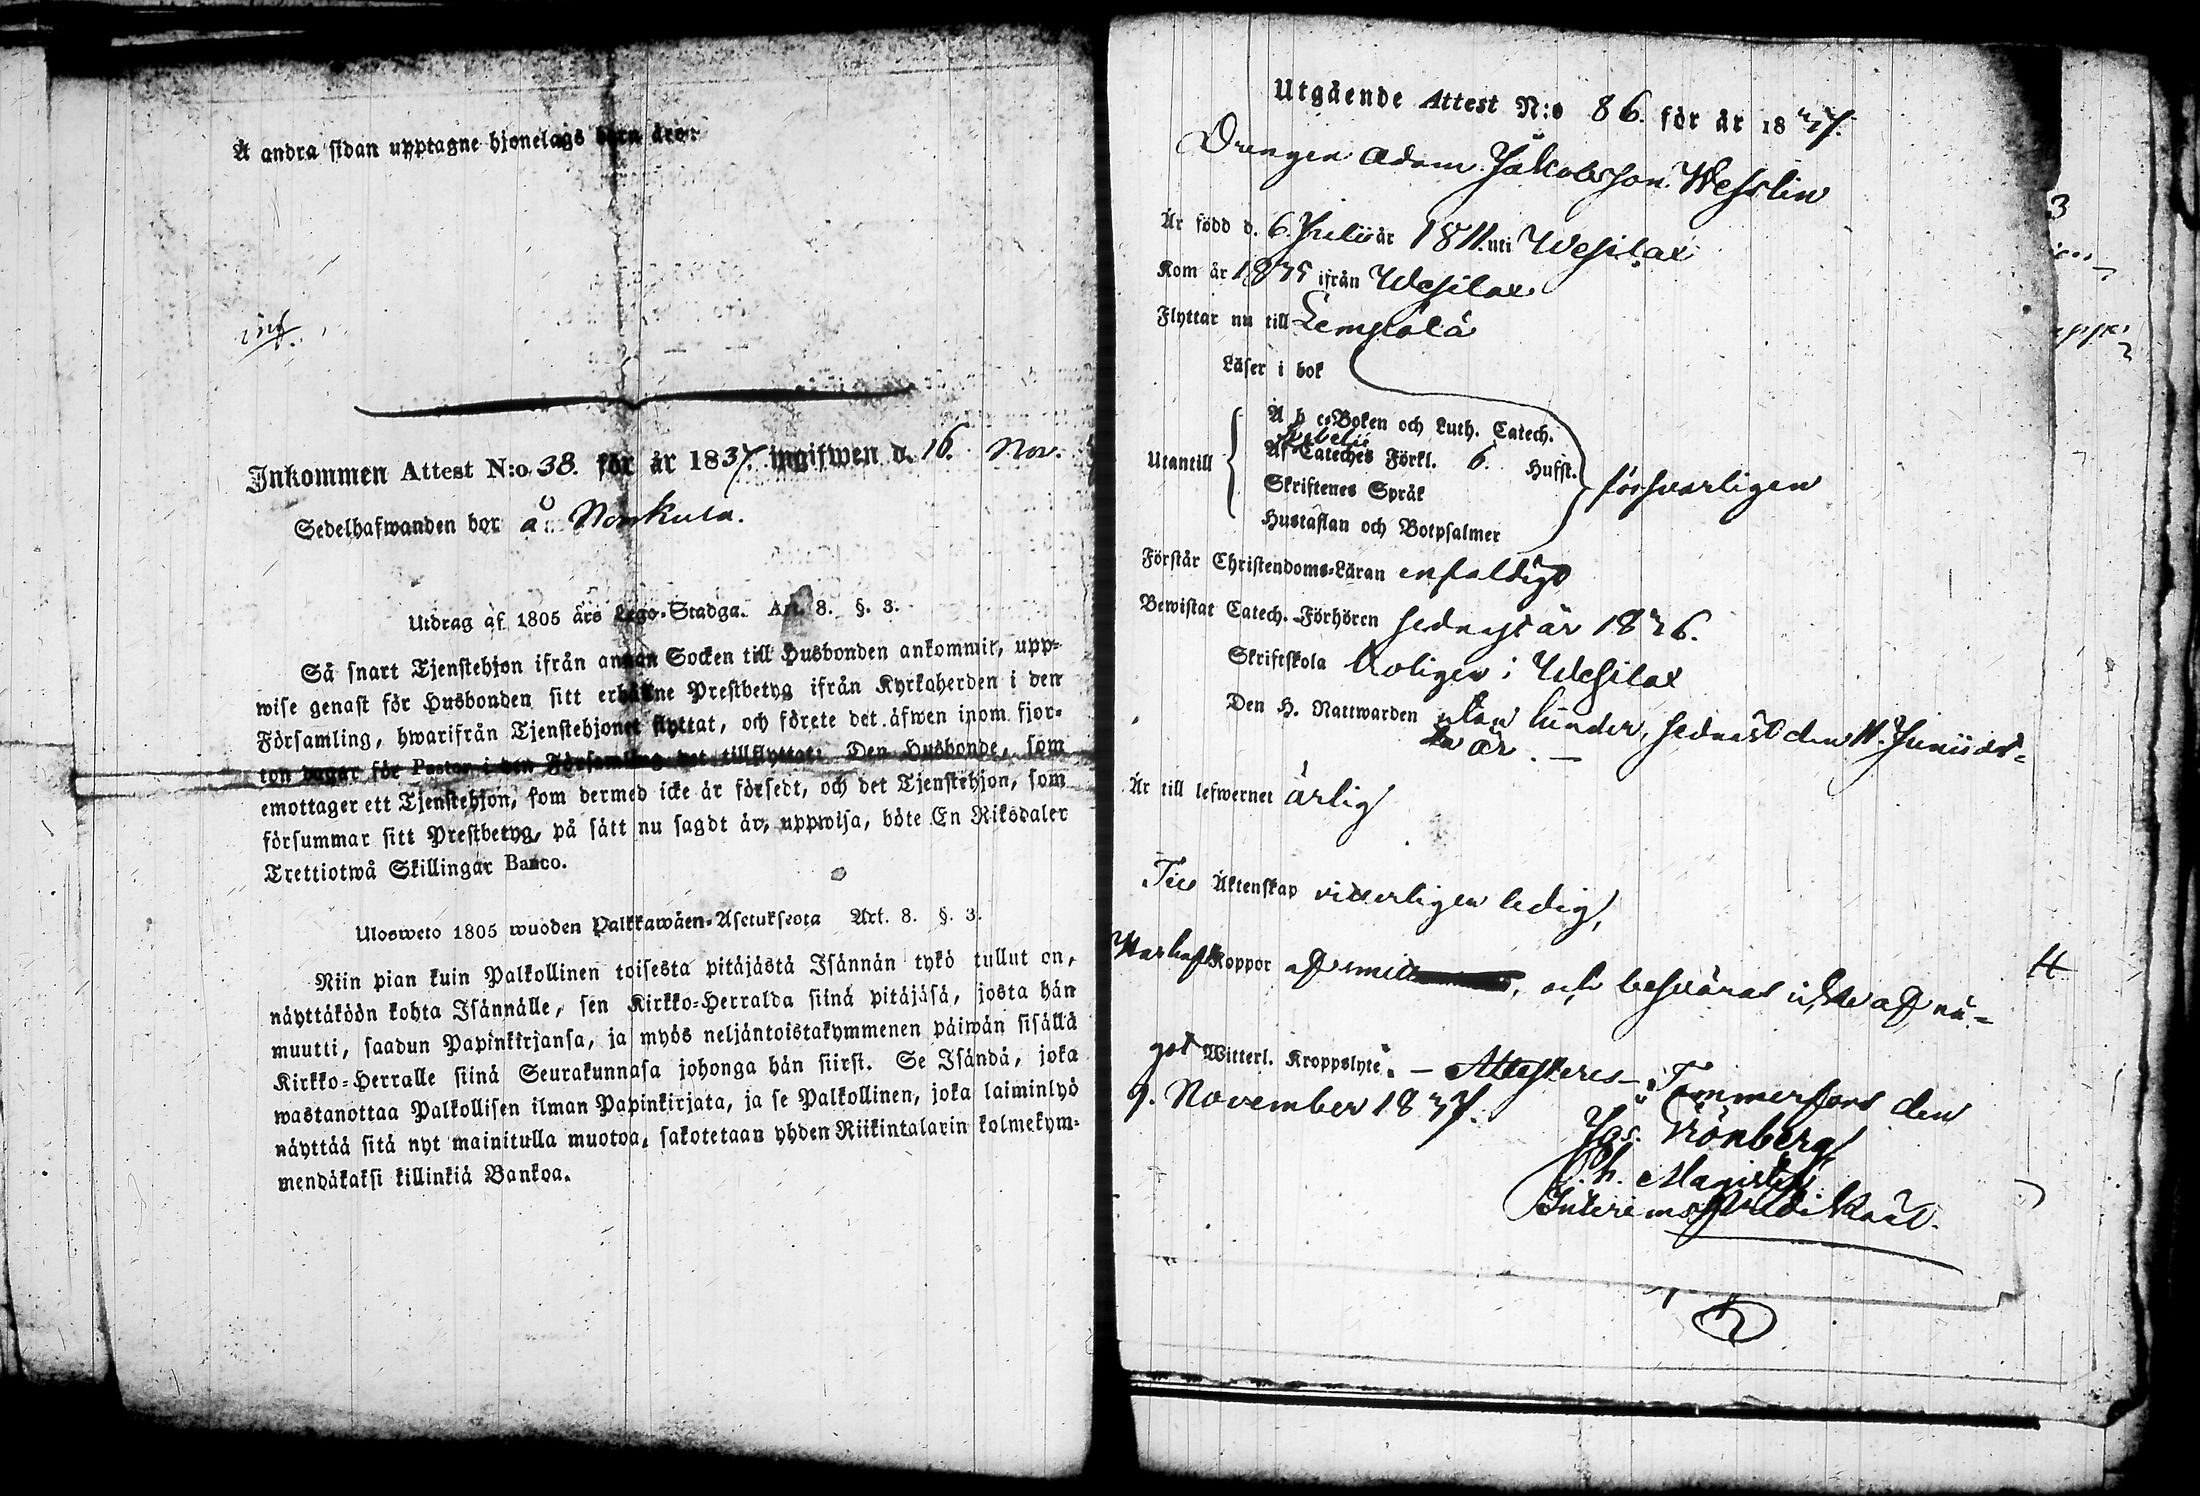 Å andra sidan upptagne hjonelags barn äro:
Inkommen Attest N:o 38. för år 1837. ingifwen d. 16. Nov.
Sedelhafwanden bor å
Utdrag af 1805 års Lego-Stadga. Art. 8. §. 3.
Så snart Tjenstehjon ifrån annan Socken till Husbonden ankommit, upp-
wise genast för Husbonden sitt erhållne Prestbetyg ifrån Kyrkoherden i den
Församling, hwarifrån Tjenstehjonet flyttat, och förete det äfwen inom fjor-
ton dagar för Pastor i den Församling det tillflyttat: Den Husbonde, som
emottager ett Tjenstehjon, som dermed icke är försedt, och det Tjenstehjon, som
försummar sitt Prestbetyg, på sätt nu sagdt är, uppwisa, böte En Riksdaler
Trettiotwå Skillingar Banco.
Ulosweto 1805 wuoden Palkkawäen-Asetuksesta Art. 8. §. 3.
Niin pian kuin Palkollinen toisesta pitäjästä Isännän tykö tullut on,
näyttäköön kohta Isännälle, sen Kirkko-Herralda siinä pitäjäsä, josta hän
muutti, saadun Papinkirjansa, ja myös neljäntoistakymmenen päiwän sisällä
Kirkko-Herralle siinä Seurakunnasa johonga hän siirsi. Se Isändä, joka
wastanottaa Palkollisen ilman Papinkirjata, ja se Palkollinen, joka laiminlyö
näyttää sitä nyt mainitulla muotoa, sakotetaan yhden Riikintalarin kolmekym-
mendäkaksi killinkiä Bankoa.
Utgående Attest N:o 86. för år 1837.
Drengen Adam Jakobsson Wesslin
Är född d. 6. Julii år 1811. uti Wesilax
Kom år 1835 ifrån Wesilax
Flyttar nu till Lempälä
Läser i bok
A b c-Boken och Luth. Catech.
Utantill Af Svebelii Cateches Förkl. 6. Hufst. försvarligen
Skriftenes Språk
Hustaflan och Botpsalmer
Förstår Christendoms-Läran enfaldigt
Bewistat Catech.-Förhören sednast år 1836.
Skriftskola troligen i Wesilax
Den H. Nattwarden utan hinder, sednast den 11. Junii det-
ta år. —
Är till lefwernet ärlig
Till Äktenskap vitterligen ledig,
Koppor och besväras icke af nå-
got Witterl. Kroppslyte. — Attesteres — Tammerfors den
9. November 1837.
Grönberg
Ph. Magister
Interims Predikant.